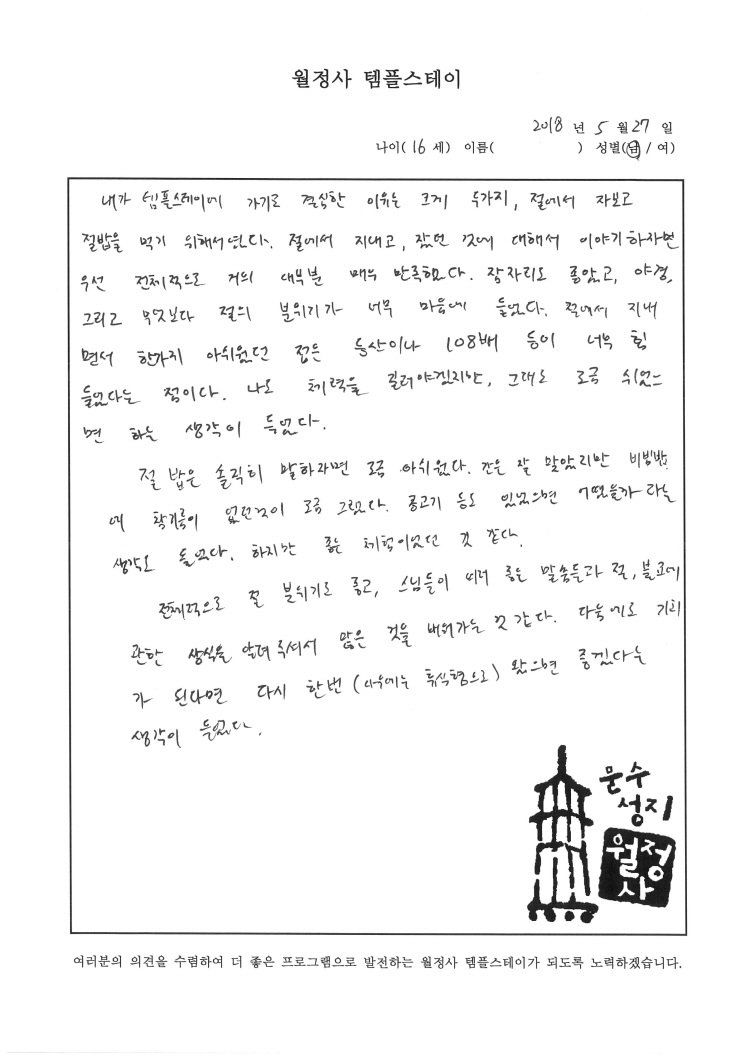 월정사 템플스테이
2018 년 5 월 27 일
나이( 16 세) 이름( ) 성별(남 / 여)
내가 템플스테이에 가기로 결심한 이유는 크게 두가지, 절에서 자보고
절밥을 먹기 위해서였다. 절에서 지내고, 잤던 것에 대해서 이야기하자면
우선 전체적으로 거의 대부분 매우 만족했다. 잠자리도 좋았고, 야경,
그리고 무엇보다 절의 분위기가 너무 마음에 들었다. 절에서 지내
면서 한가지 아쉬웠던 점은 등산이나 108배 등이 너무 힘
들었다는 점이다. 나도 체력을 길러야겠지만, 그래도 조금 쉬웠으
면 하는 생각이 들었다.
절 밥은 솔직히 말하자면 조금 아쉬웠다. 간은 잘 맞았지만 비빔밥
에 참기름이 없던것이 조금 그랬다. 콩고기 등도 있었으면 어땠을까 라는
생각도 들었다. 하지만 좋은 체험이었던 것 같다.
전체적으로 절 분위기도 좋고, 스님들이 여러 좋은 말씀들과 절, 불교에
관한 상식을 알려 주셔서 많은 것을 배워가는 것 같다. 다음에도 기회
가 된다면 다시 한번 (다음에는 휴식형으로) 왔으면 좋겠다는
생각이 들었다.
문수
성지
월정
사
여러분의 의견을 수렴하여 더 좋은 프로그램으로 발전하는 월정사 템플스테이가 되도록 노력하겠습니다.